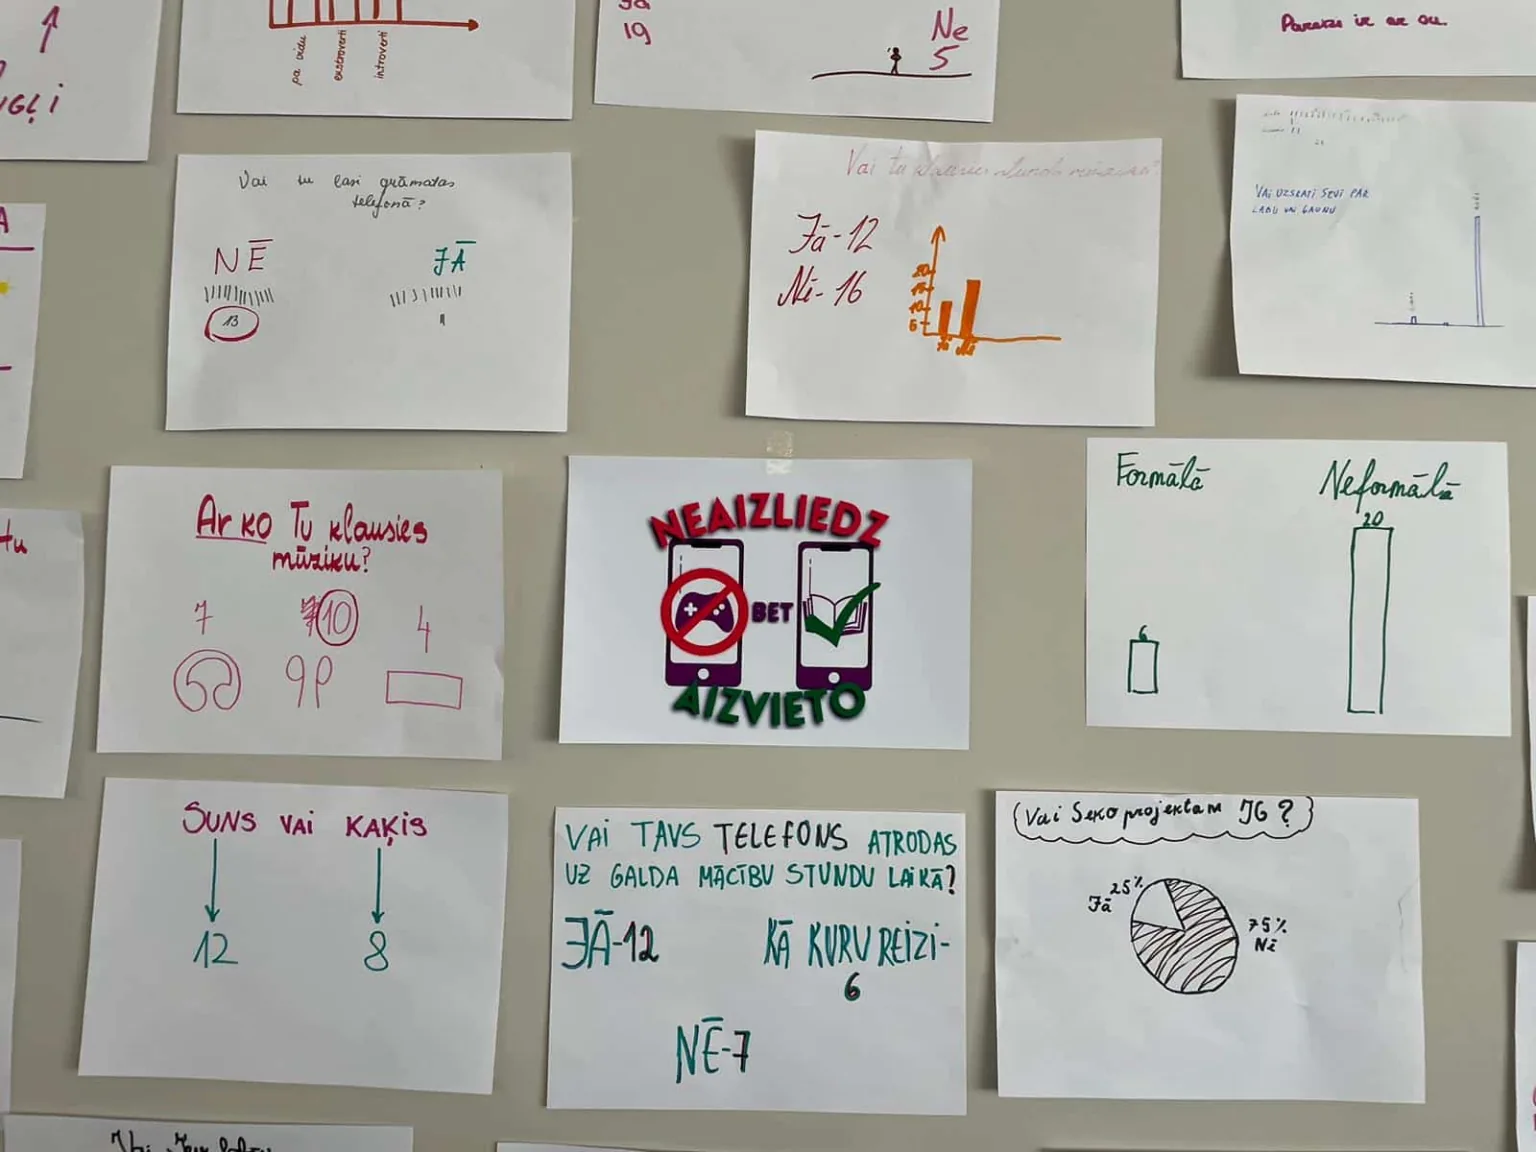 pa vidu
ekstroverti
introverti
19
Ne
5
Vai tu lasi grāmatas
telefonā?
NĒ
JĀ
13
11
Vai tu
Jā-12
Nē-16
20
15
10
5
Jā
Nē
VAI UZSKATI SEVI PAR
LABU VAI ĻAUNU
Ar ko Tu klausies
mūziku?
7
10
4
NEAIZLIEDZ
BET
AIZVIETO
Formālā
Neformālā
6
20
SUNS VAI KAĶIS
12
8
VAI TAVS TELEFONS ATRODAS
UZ GALDA MĀCĪBU STUNDU LAIKĀ?
JĀ-12
KĀ KURU REIZI-
6
NĒ-7
Vai Seko projektam IG?
25%
Jā
75%
Nē